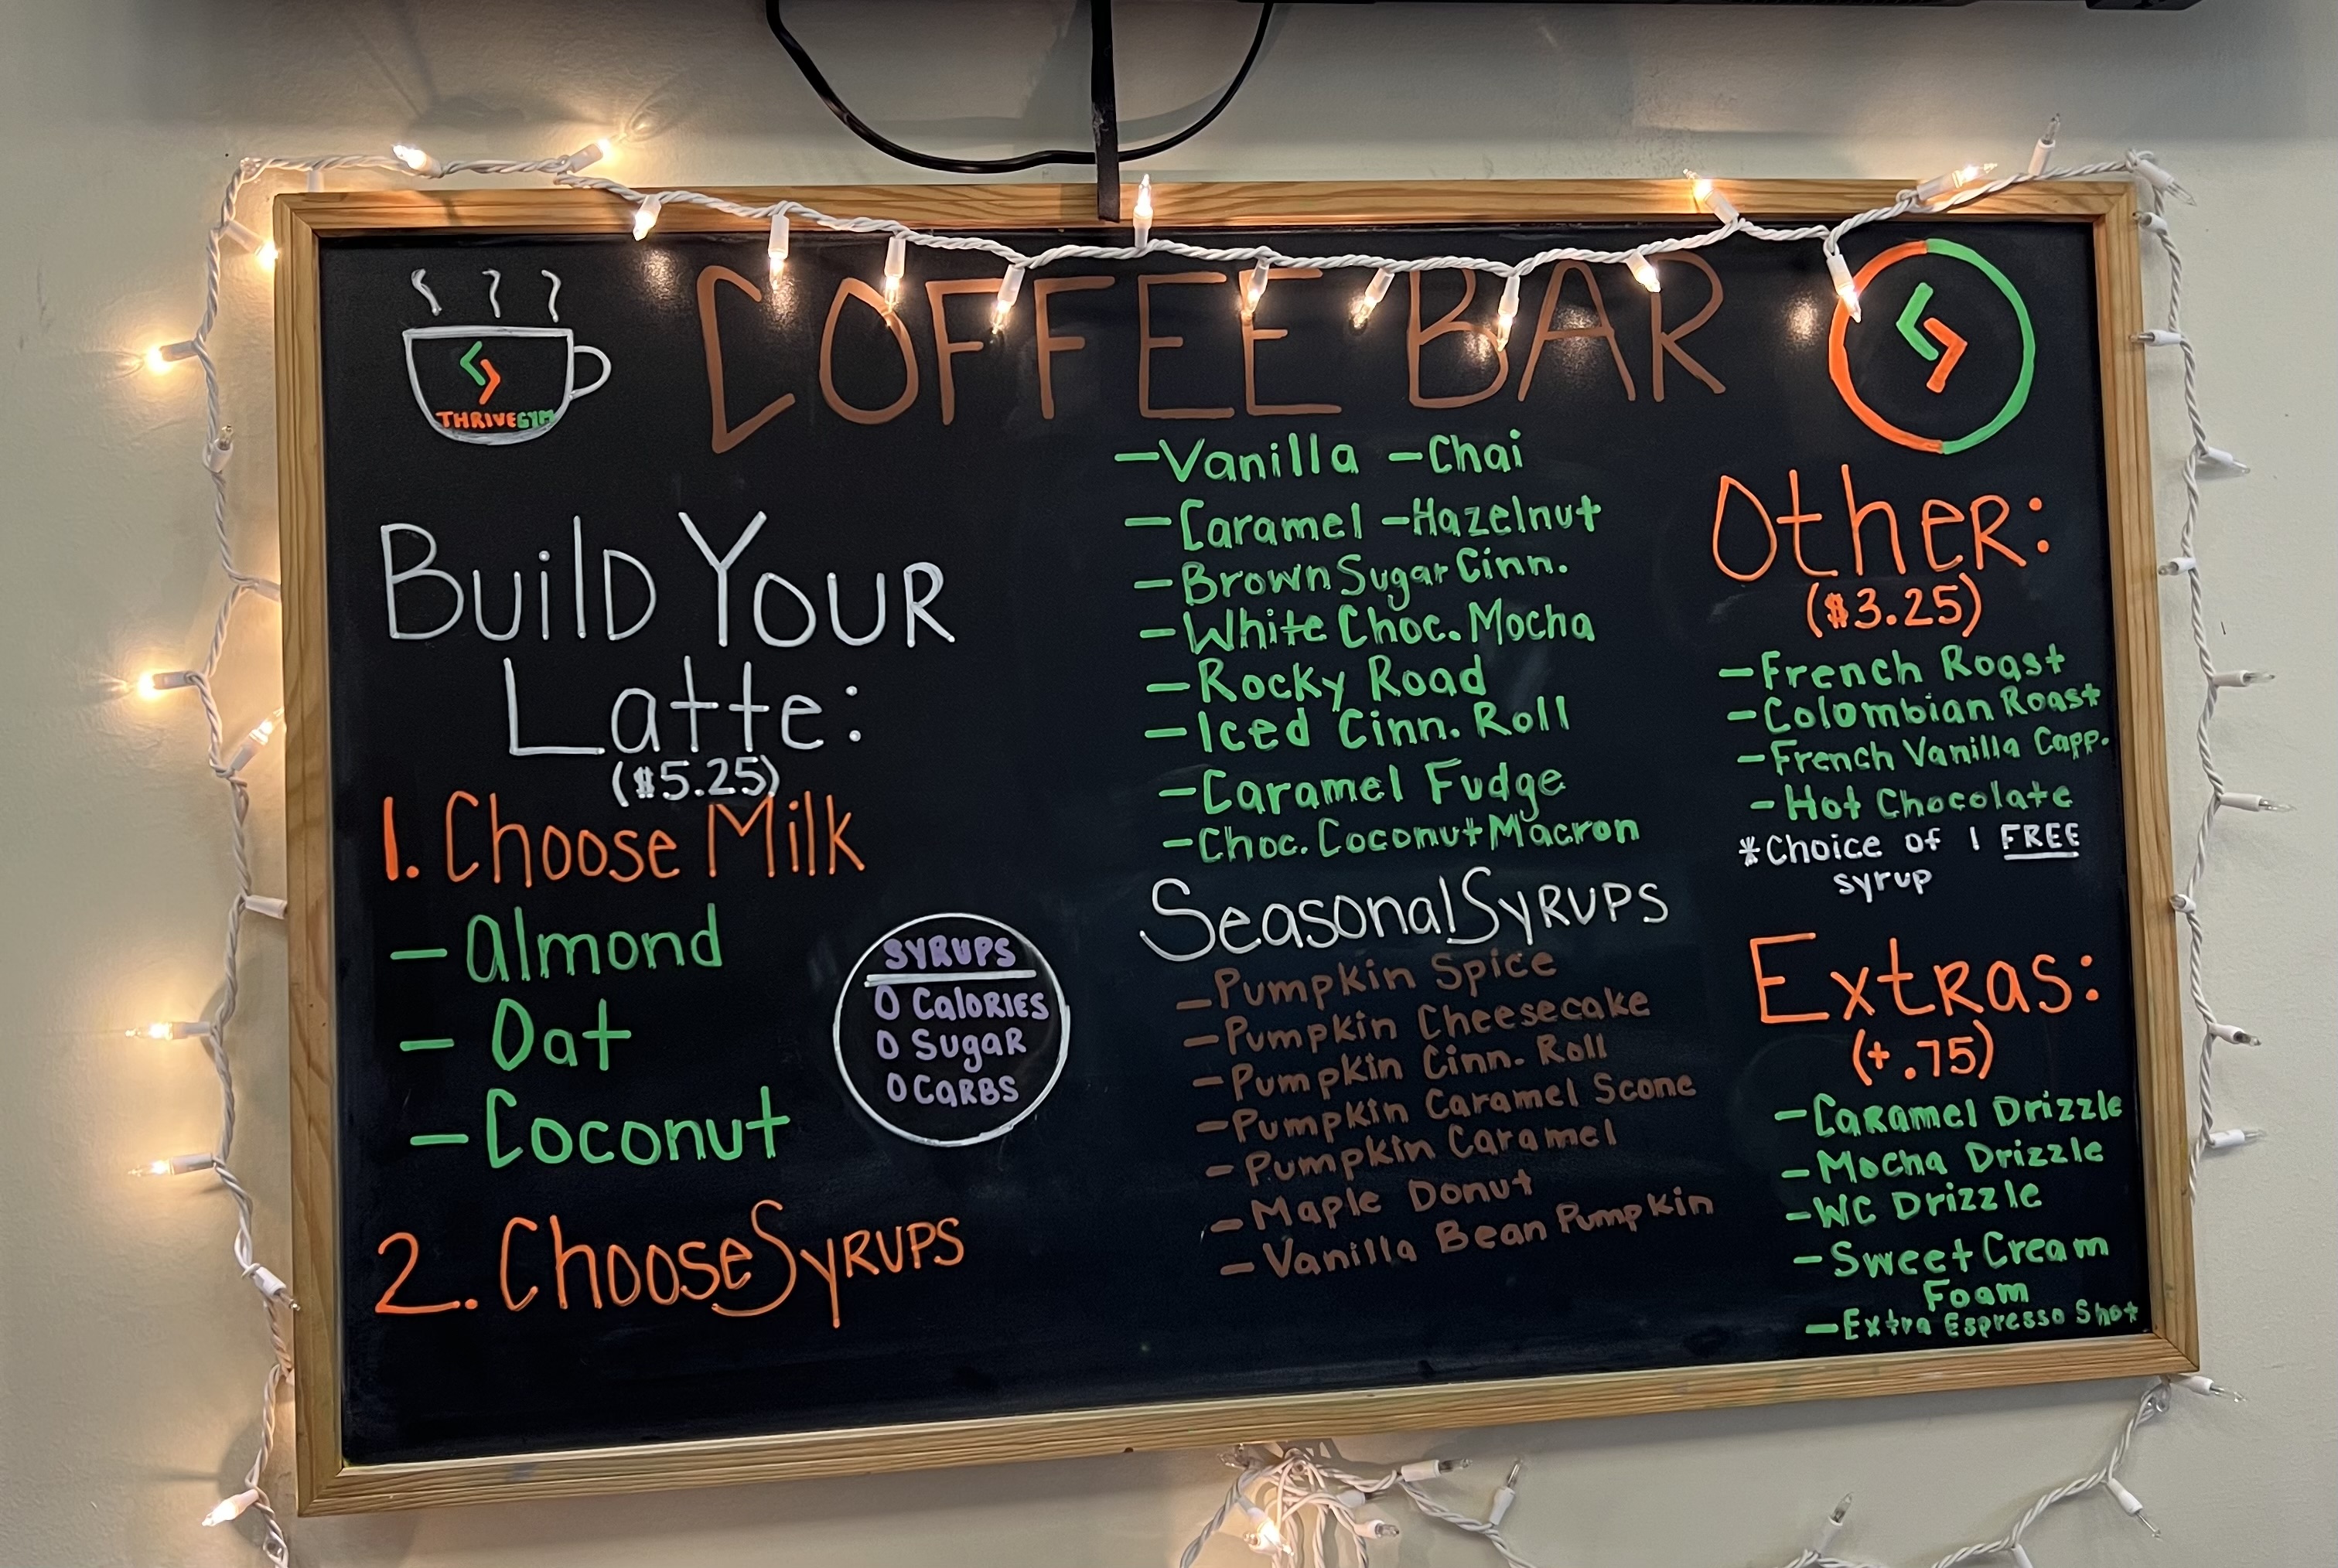 COFFEE BAR
THRIVEGYM
Build Your
Latte:
($5.25)
1. Choose Milk
- Almond
- Oat
- Coconut
2. Choose Syrups
SYRUPS
0 Calories
0 Sugar
0 Carbs
- Vanilla - Chai
- Caramel - Hazelnut
- Brown Sugar Cinn.
- White Choc. Mocha
- Rocky Road
- Iced Cinn. Roll
- Caramel Fudge
- Choc. Coconut Macron
Seasonal Syrups
- Pumpkin Spice
- Pumpkin Cheesecake
- Pumpkin Cinn. Roll
- Pumpkin Caramel Scone
- Pumpkin Caramel
- Maple Donut
- Vanilla Bean Pumpkin
Other:
($3.25)
- French Roast
- Colombian Roast
- French Vanilla Capp.
- Hot Chocolate
*Choice of 1 FREE
syrup
Extras:
(+.75)
- Caramel Drizzle
- Mocha Drizzle
- WC Drizzle
- Sweet Cream
Foam
- Extra Espresso Shot